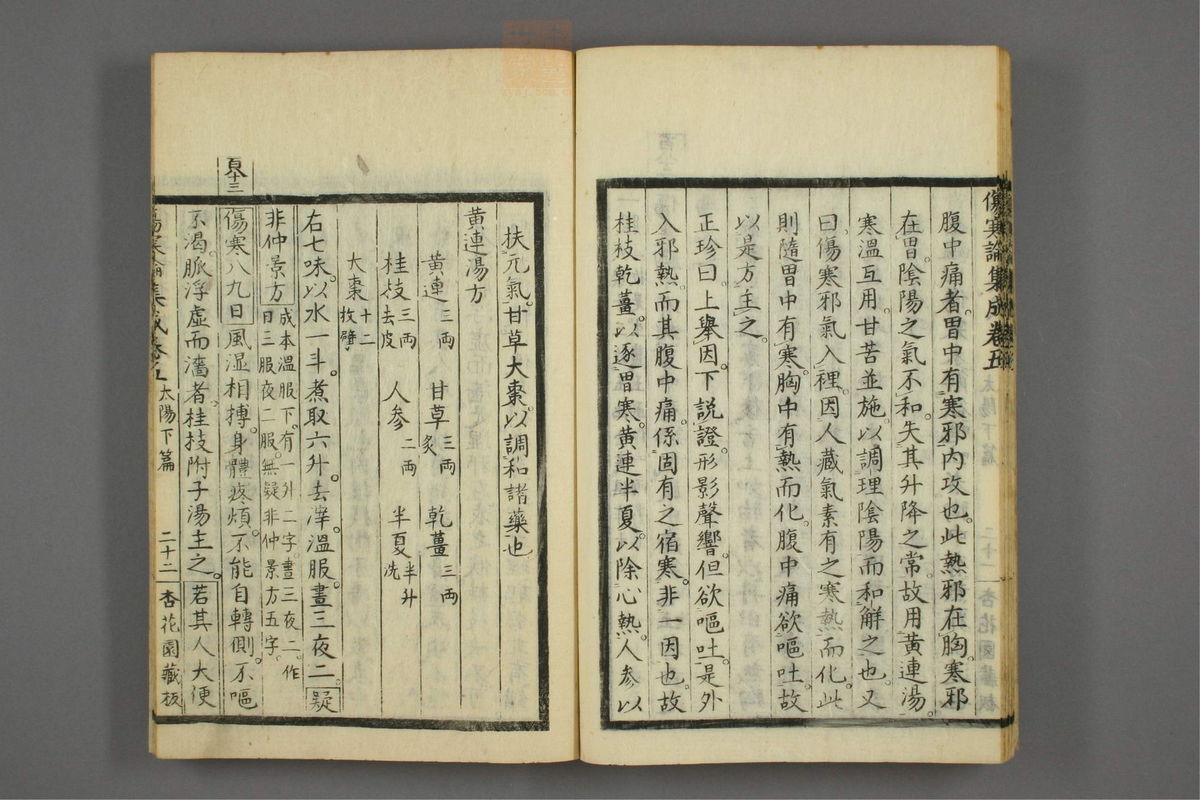 傷寒論集成卷五
腹中痛者。胃中有寒邪內攻也。此熱邪在胸。寒邪
在胃。陰陽之氣不和。失其升降之常。故用黃連湯。
寒溫互用。甘苦並施。以調理陰陽而和解之也。又
曰。傷寒邪氣入裡。因人藏氣素有之寒熱而化。此
則隨胃中有寒。胸中有熱而化。腹中痛欲嘔吐。故
以是方主之。
正珍曰。上舉因。下說證。形影聲響。但欲嘔吐。是外
入邪熱。而其腹中痛。係固有之宿寒。非一因也。故
桂枝乾薑。以逐胃寒。黃連半夏。以除心熱。人參以
扶元氣。甘草大棗。以調和諸藥也
黃連湯方
黃連三兩 甘草三兩炙 乾薑三兩
桂枝三兩去皮 人參二兩 半夏半升洗
大棗十二枚擘
右七味。以水一斗。煮取六升。去滓。溫服。晝三夜二。疑
非仲景方 成本溫服下。有一升二字。晝三夜二。作
日三服夜二服。無疑非仲景方五字。
百十三
傷寒八九日。風湿相搏。身體疼煩。不能自轉側。不嘔
不渴。脈浮虛而濇者。桂枝附子湯主之。若其人大便
傷寒論集成卷五 太陽下篇 二十二 杏花園藏板